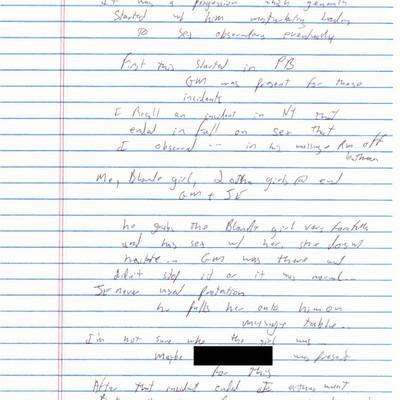 it was a progression which generally
Started w/ him masturbating leading
TO Sex observatory eventually
First this started in PB
GM was present for those
incidents
I Recall an incident in NY that
ended in full on sex that
I observed -- in his massage Rm off
Me, Blonde girl, 2 other girls @ end
GM + JE
he grabs the Blonde girl very forcefully
and has sex w/ her, she doesn't
hesitate... GM was there and
didn't stop it or it was normal...
JE never used protection
he pulls her onto him on
massage table...
I'm not sure who the girl was...
Maybe was present
for this
After that incident ended JE